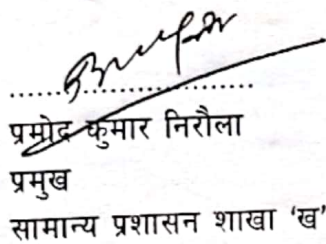 ............................
प्रमोद कुमार निरौला
प्रमुख
सामान्य प्रशासन शाखा 'ख'